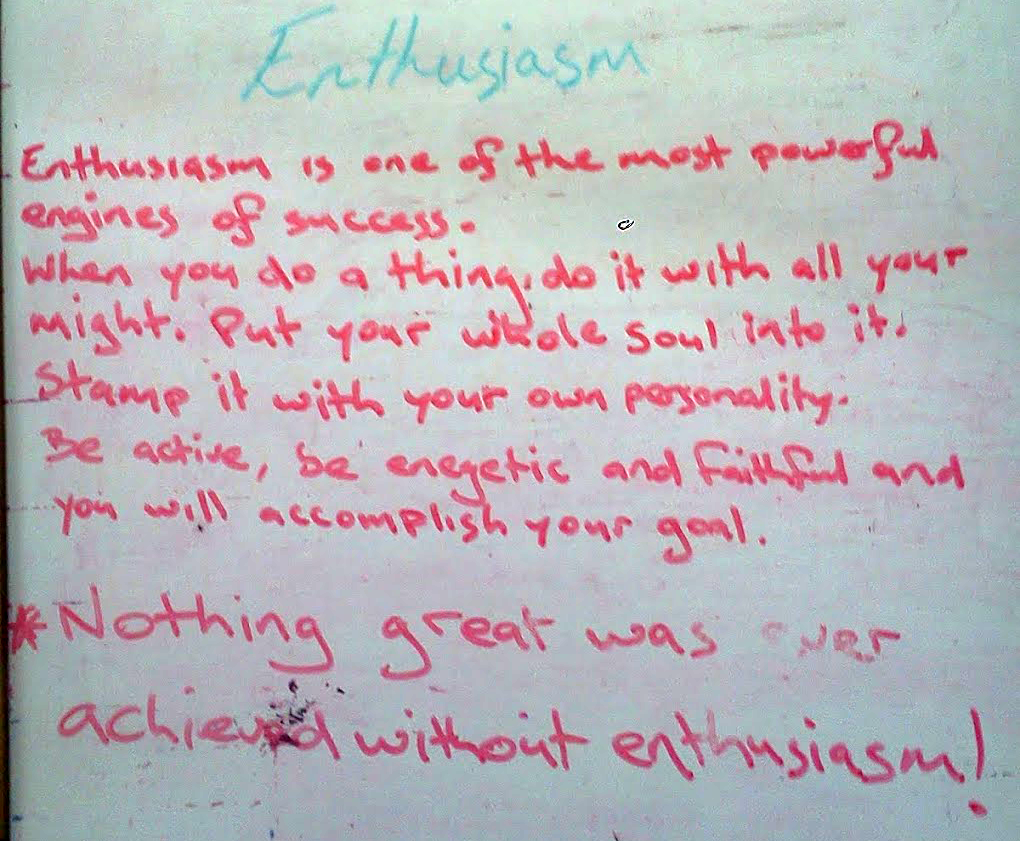 Enthusiasm
Enthusiasm is one of the most powerful
engines of success.
When you do a thing, do it with all your
might. Put your whole soul into it.
Stamp it with your own personality.
Be active, be enegetic and faithful and
you will accomplish your goal.
*Nothing great was ever
achieved without enthusiasm!